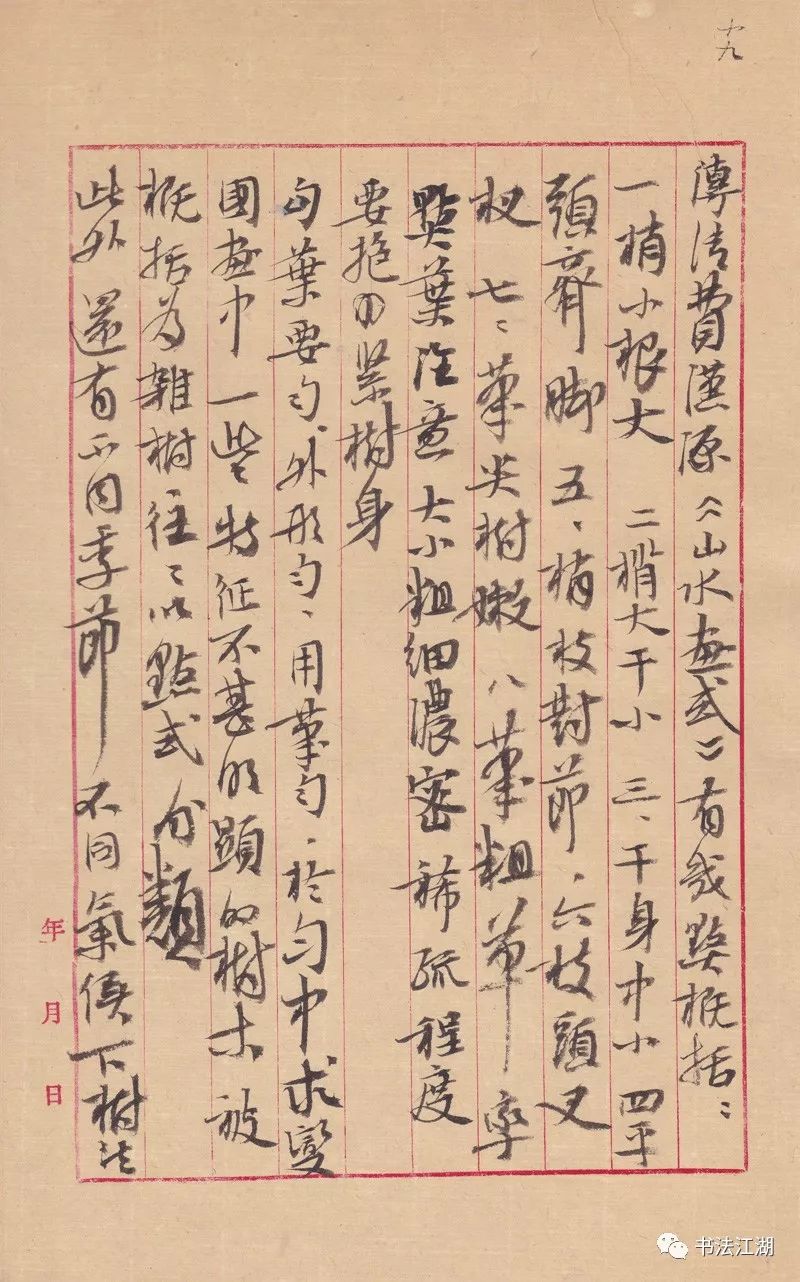 十九
清費漢源《山水画式》有幾點概括:
一梢小根大 二梢大干小 三、干身中小 四平
頭齊脚 五、梢枝對節、六枝頭叉
杈 七、筆尖樹嫩 八筆粗草率
點葉注意大小粗细濃密稀疏程度
要抱緊樹身
勾葉要勻、外形勻、用筆勻、於勻中求變
國画中一些特征不甚明顯的樹木被
概括為雜樹往往以點式分類
此外還有不同季節不同氣候下樹法
年 月 日
书法江湖